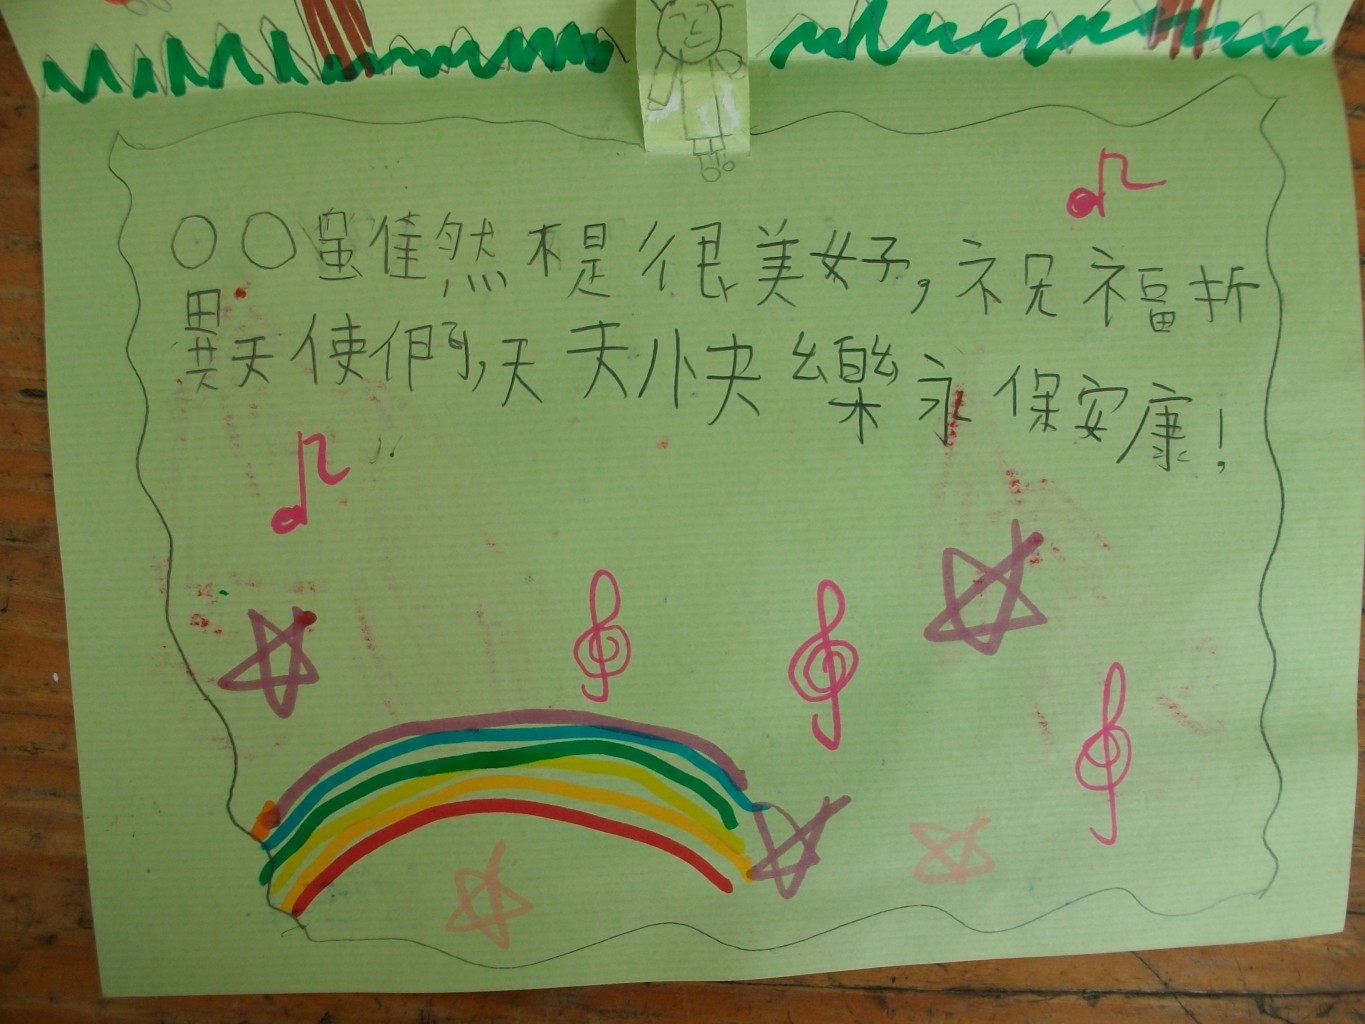 ○○雖然不是很美好,祝福折
翼天使們,天天快樂永保安康!